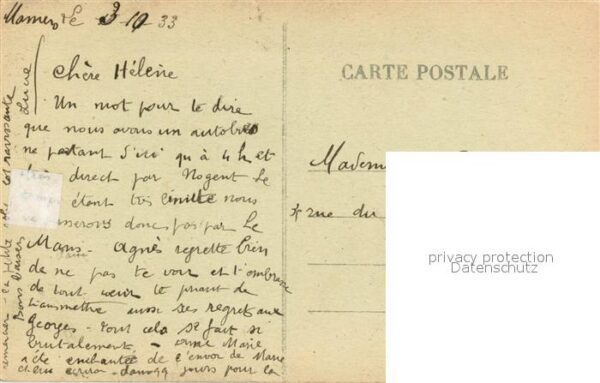 Mamers le 3-10 33
Chère Hélène
Un mot pour te dire
que nous avons un autobus
ne partant d'ici qu'à 4h et
direct par Nogent le
étant très limité nous
donc pas par Le
Mans - Agnès regrette bien
de ne pas te voir et t'embrasse
de tout cœur te priant de
transmettre aussi ses regrets aux
Georges - tout cela se fait si
brutalement - Marie
a été enchantée de l'envoi de Marie
jours pour la
remercier - la petite robe est ravissante
Bons baisers
Lucie
CARTE POSTALE
Madem
rue du
privacy protection
Datenschutz